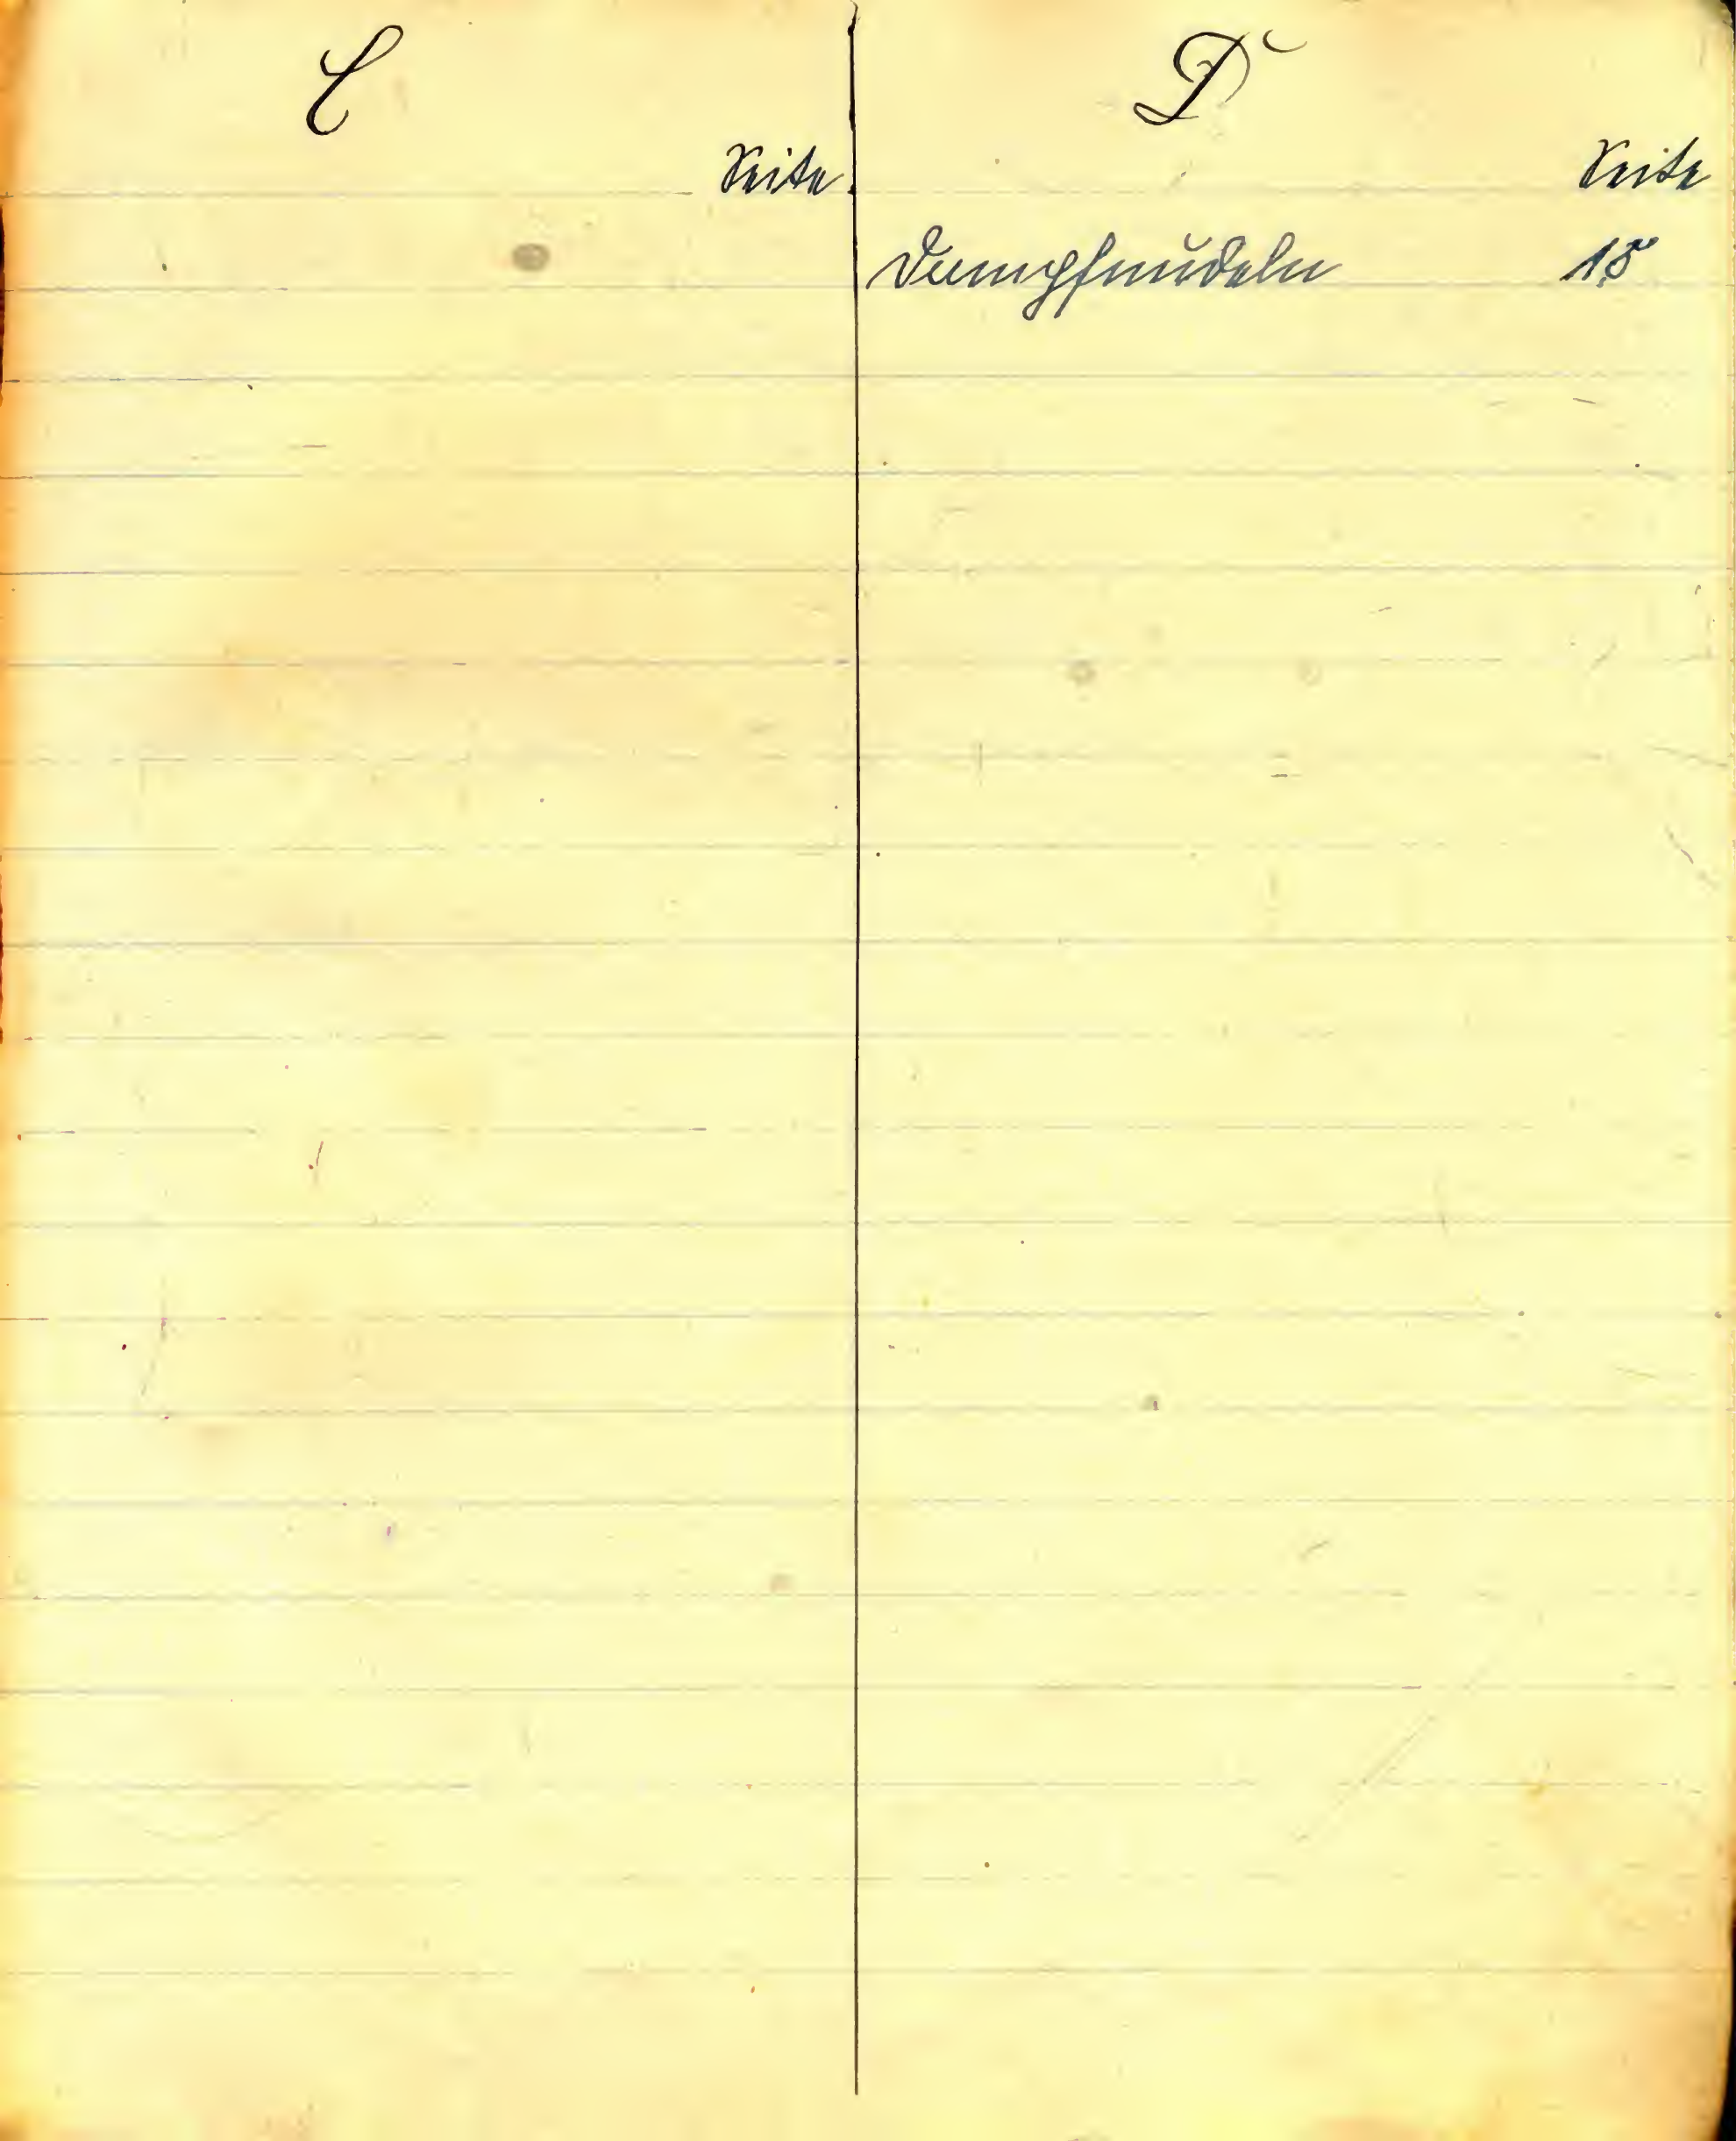 C
D
Seite
Seite
Dampfnudeln 15